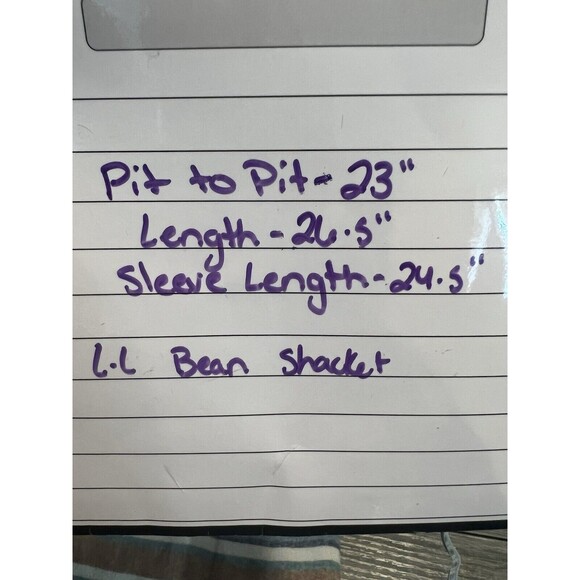 Pit to Pit - 23"
Length - 26.5"
Sleeve Length - 24.5"
L.L Bean Shacket